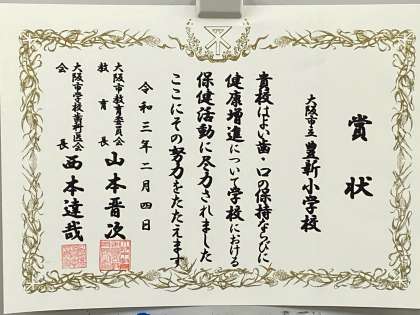 賞状
大阪市立 豊新小学校
貴校はよい歯・口の保持ならびに
健康増進について学校における
保健活動に尽力されました
ここにその努力をたたえます
令和三年二月四日
大阪市教育委員会
教育長 山本晋次
大阪市学校歯科医会
会長 西本達哉